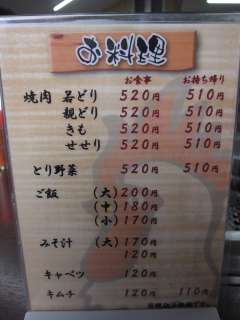 お料理
お食事 お持ち帰り
焼肉 若どり 520円 510円
親どり 520円 510円
きも 520円 510円
せせり 520円 510円
とり野菜 520円 510円
ご飯 (大) 200円
(中) 180円
(小) 170円
みそ汁 (大) 170円
120円
キャベツ 120円
キムチ 120円 110円